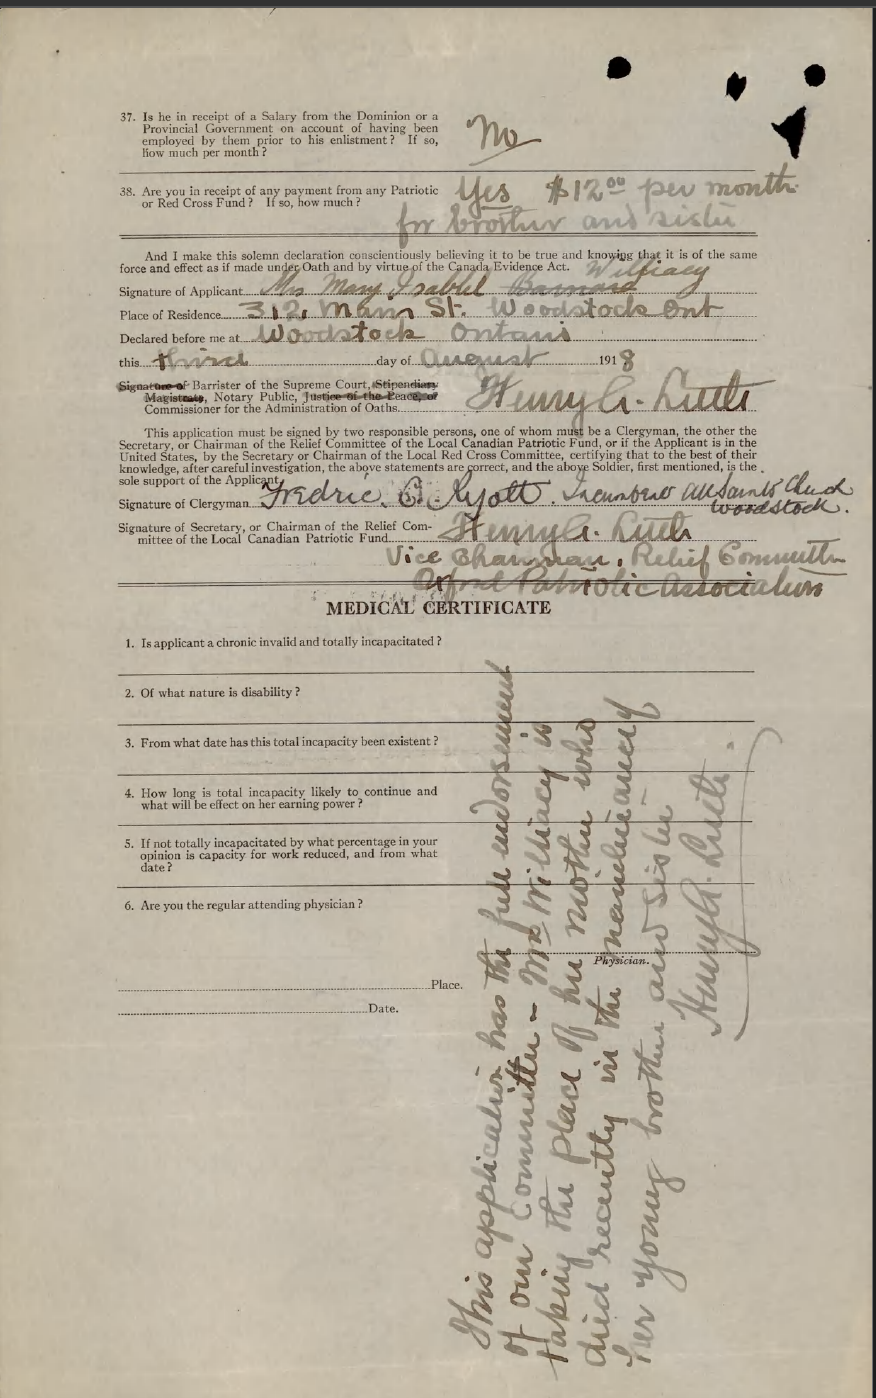 37. Is he in receipt of a Salary from the Dominion or a
Provincial Government on account of having been
employed by them prior to his enlistment? If so,
how much per month?
No
38. Are you in receipt of any payment from any Patriotic
or Red Cross Fund? If so, how much?
Yes $12.00 per month
for brother and sister
And I make this solemn declaration conscientiously believing it to be true and knowing that it is of the same
force and effect as if made under Oath and by virtue of the Canada Evidence Act.
Signature of Applicant Mrs Mary Isabel Barnard Williacy
Place of Residence 312 Main St. Woodstock Ont
Declared before me at Woodstock Ontario
this third day of August 1918
Signature of Barrister of the Supreme Court, Stipendiary
Magistrate, Notary Public, Justice of the Peace, or
Commissioner for the Administration of Oaths. Henry A. Little
This application must be signed by two responsible persons, one of whom must be a Clergyman, the other the
Secretary, or Chairman of the Relief Committee of the Local Canadian Patriotic Fund, or if the Applicant is in the
United States, by the Secretary or Chairman of the Local Red Cross Committee, certifying that to the best of their
knowledge, after careful investigation, the above statements are correct, and the above Soldier, first mentioned, is the
sole support of the Applicant.
Signature of Clergyman Fredric G. Ryott. Incumbent All Saints Church
Woodstock.
Signature of Secretary, or Chairman of the Relief Com-
mittee of the Local Canadian Patriotic Fund. Henry A. Little
Vice Chairman, Relief Committee
Oxford Patriotic Association
MEDICAL CERTIFICATE
1. Is applicant a chronic invalid and totally incapacitated?
2. Of what nature is disability?
3. From what date has this total incapacity been existent?
4. How long is total incapacity likely to continue and
what will be effect on her earning power?
5. If not totally incapacitated by what percentage in your
opinion is capacity for work reduced, and from what
date?
6. Are you the regular attending physician?
Physician.
Place.
Date.
This application has the full endorsement
of our Committee - Mrs Williacy is
taking the place of her mother who
died recently in the maintenance of
her young brother and sister -
Henry A. Little.